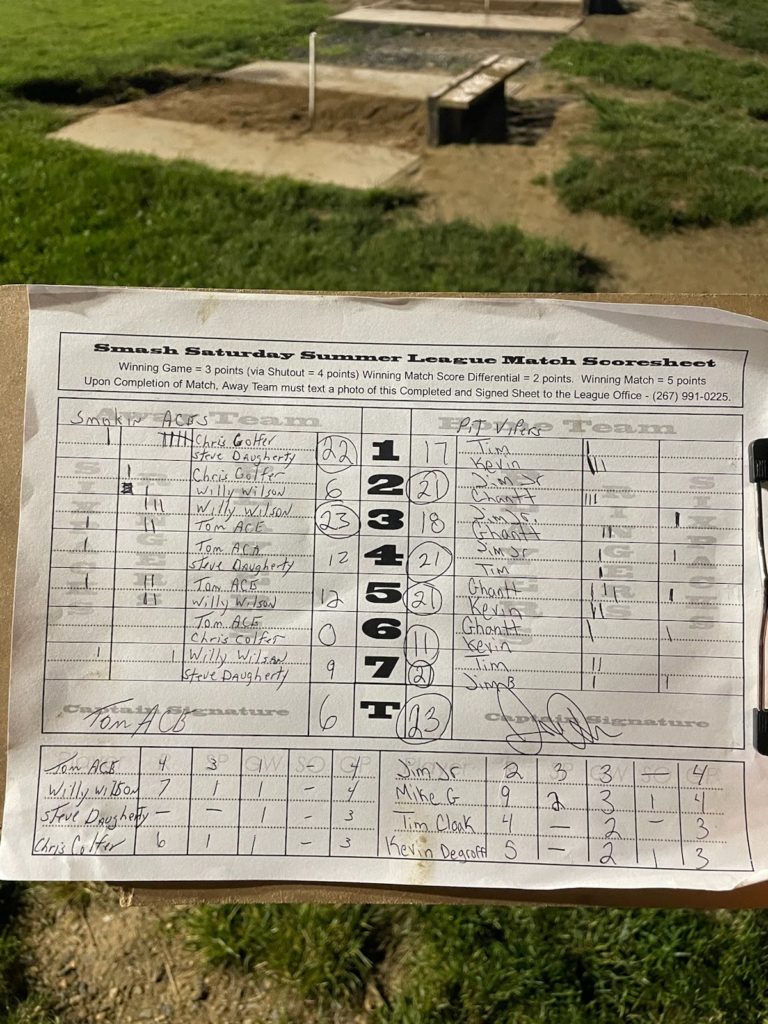 Smash Saturday Summer League Match Scoresheet
Winning Game = 3 points (via Shutout = 4 points) Winning Match Score Differential = 2 points. Winning Match = 5 points
Upon Completion of Match, Away Team must text a photo of this Completed and Signed Sheet to the League Office - (267) 991-0225.
Away Team Home Team
Smokin ACES Pit Vipers
Chris Golfer 22 1 17 Tim
Steve Daugherty Kevin
Chris Golfer 6 2 21 Jim Jr
Willy Wilson Ghantt
Willy Wilson 23 3 18 Jim Jr.
Tom ACE Ghantt
Tom ACA 12 4 21 Jim Jr
Steve Daugherty Tim
Tom ACE 12 5 21 Ghantt
Willy Wilson Kevin
Tom ACE 0 6 11 Ghantt
Chris Colfer Kevin
Willy Wilson 9 7 21 Tim
Steve Daugherty Jim B
Captain Signature 6 T 23 Captain Signature
Tom ACE
Tom ACE 4 3 1 - 4 Jim Jr 2 3 3 - 4
Willy Wilson 7 1 1 - 4 Mike G 9 2 3 1 4
Steve Daugherty - - 1 - 3 Tim Cloak 4 - 2 - 3
Chris Colfer 6 1 1 - 3 Kevin Degroff 5 - 2 1 3